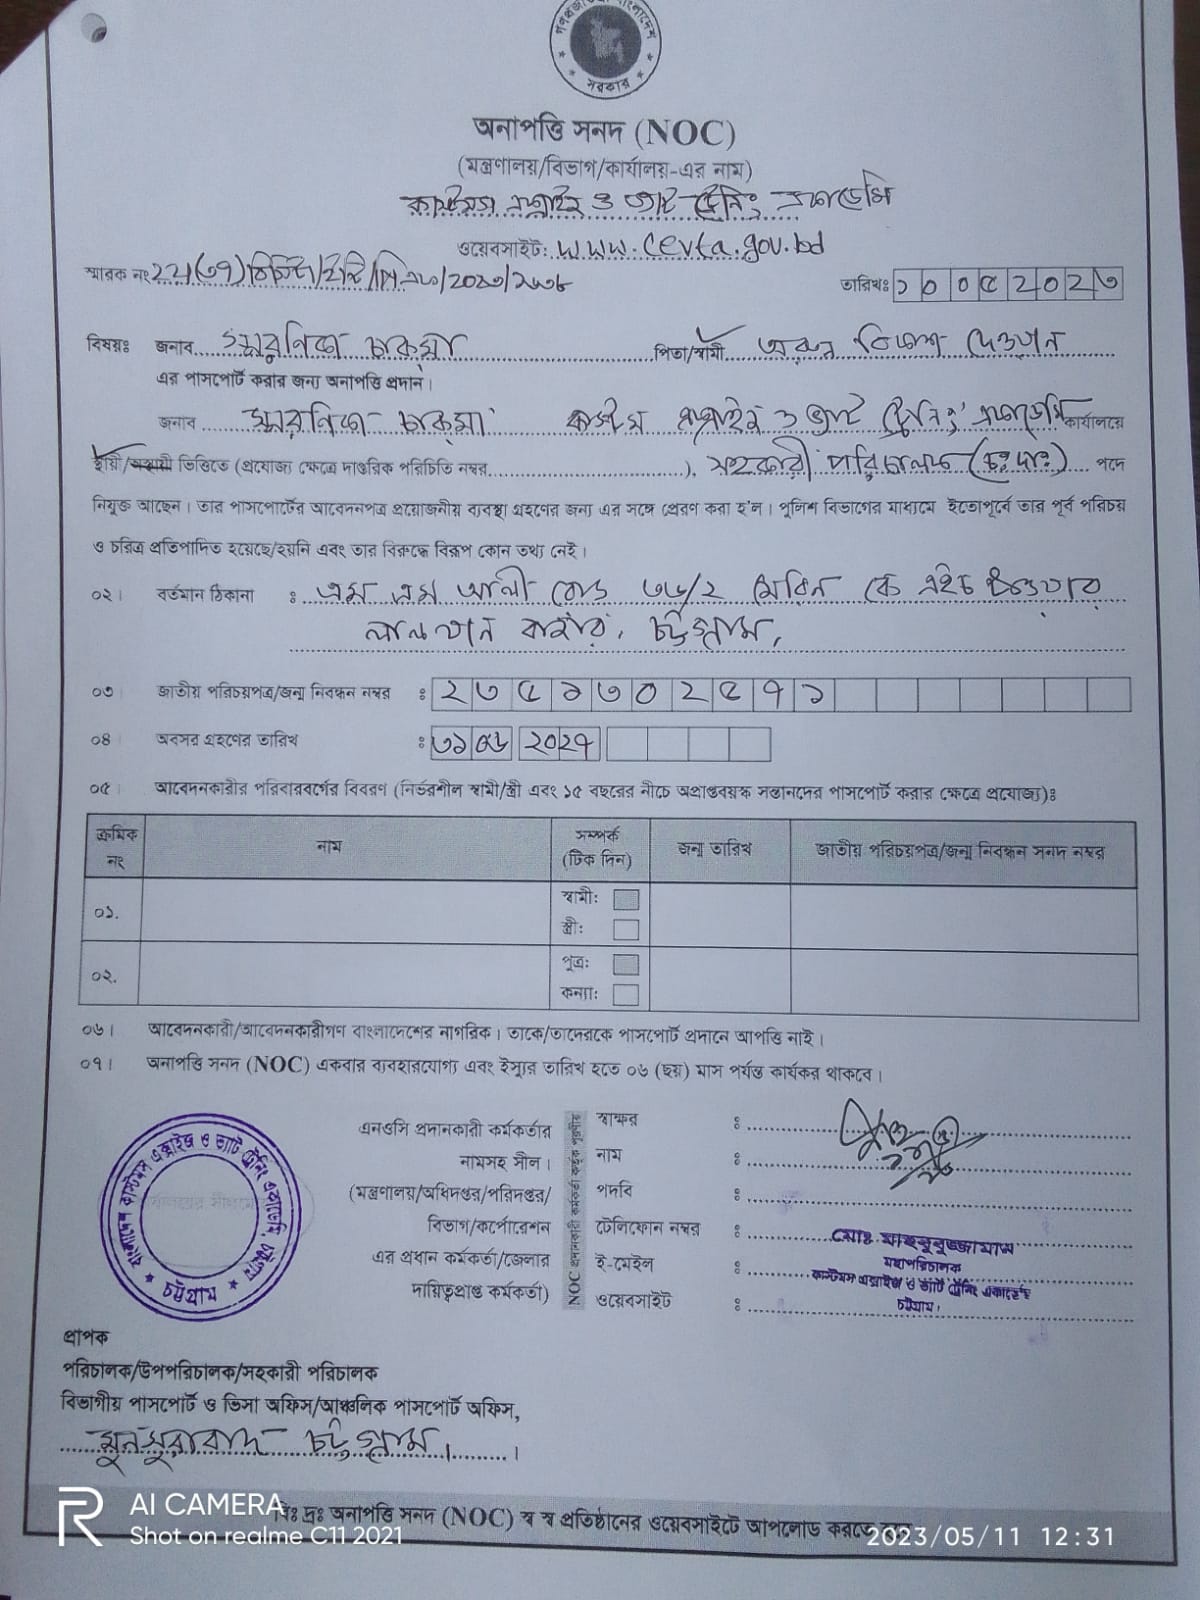 গণপ্রজাতন্ত্রী বাংলাদেশ
সরকার
অনাপত্তি সনদ (NOC)
(মন্ত্রণালয়/বিভাগ/কার্যালয়-এর নাম)
কাস্টমস এক্সাইজ ও ভ্যাট ট্রেনিং একাডেমি
ওয়েবসাইট: www.cevta.gov.bd
স্মারক নং
তারিখঃ ১০০৫২০২৩
বিষয়ঃ জনাব চাকমা পিতা/স্বামী দেওয়ান
এর পাসপোর্ট করার জন্য অনাপত্তি প্রদান।
জনাব চাকমা কাস্টমস এক্সাইজ ও ভ্যাট ট্রেনিং একাডেমি কার্যালয়ে
স্থায়ী/অস্থায়ী ভিত্তিতে (প্রযোজ্য ক্ষেত্রে দাপ্তরিক পরিচিতি নম্বর), সহকারী পরিচালক (চঃদাঃ) পদে
নিযুক্ত আছেন। তার পাসপোর্টের আবেদনপত্র প্রয়োজনীয় ব্যবস্থা গ্রহণের জন্য এর সঙ্গে প্রেরণ করা হ'ল। পুলিশ বিভাগের মাধ্যমে ইতোপূর্বে তার পূর্ব পরিচয়
ও চরিত্র প্রতিপাদিত হয়েছে/হয়নি এবং তার বিরুদ্ধে বিরূপ কোন তথ্য নেই।
০২। বর্তমান ঠিকানা : এম এম আলী রোড ৩৬/২ মেরিন কে এইচ টাওয়ার
লালখান বাজার, চট্টগ্রাম,
০৩ জাতীয় পরিচয়পত্র/জন্ম নিবন্ধন নম্বর : ২৩৫১৩০২৫৭১
০৪ অবসর গ্রহণের তারিখ : ২০২৭
০৫ আবেদনকারীর পরিবারবর্গের বিবরণ (নির্ভরশীল স্বামী/স্ত্রী এবং ১৫ বছরের নীচে অপ্রাপ্তবয়স্ক সন্তানদের পাসপোর্ট করার ক্ষেত্রে প্রযোজ্য)ঃ
ক্রমিক নং নাম সম্পর্ক (টিক দিন) জন্ম তারিখ জাতীয় পরিচয়পত্র/জন্ম নিবন্ধন সনদ নম্বর
০১. স্বামী:
স্ত্রী:
০২. পুত্র:
কন্যা:
০৬। আবেদনকারী/আবেদনকারীগণ বাংলাদেশের নাগরিক। তাকে/তাদেরকে পাসপোর্ট প্রদানে আপত্তি নাই।
০৭। অনাপত্তি সনদ (NOC) একবার ব্যবহারযোগ্য এবং ইস্যুর তারিখ হতে ০৬ (ছয়) মাস পর্যন্ত কার্যকর থাকবে।
বাংলাদেশ কাস্টমস এক্সাইজ ও ভ্যাট ট্রেনিং একাডেমি, চট্টগ্রাম
চট্টগ্রাম
এনওসি প্রদানকারী কর্মকর্তার
নামসহ সীল।
(মন্ত্রণালয়/অধিদপ্তর/পরিদপ্তর/
বিভাগ/কর্পোরেশন
এর প্রধান কর্মকর্তা/জেলার
দায়িত্বপ্রাপ্ত কর্মকর্তা)
NOC প্রদানকারী কর্মকর্তা কর্তৃক পূরণীয়
স্বাক্ষর :
নাম :
পদবি :
টেলিফোন নম্বর :
ই-মেইল :
ওয়েবসাইট :
মোঃ মাহবুবুজ্জামান
মহাপরিচালক
কাস্টমস এক্সাইজ ও ভ্যাট ট্রেনিং একাডেমি
চট্টগ্রাম।
প্রাপক
পরিচালক/উপপরিচালক/সহকারী পরিচালক
বিভাগীয় পাসপোর্ট ও ভিসা অফিস/আঞ্চলিক পাসপোর্ট অফিস,
মুনসুরাবাদ চট্টগ্রাম।
বিঃ দ্রঃ অনাপত্তি সনদ (NOC) স্ব স্ব প্রতিষ্ঠানের ওয়েবসাইটে আপলোড করতে হবে
R AI CAMERA
Shot on realme C11 2021
2023/05/11 12:31